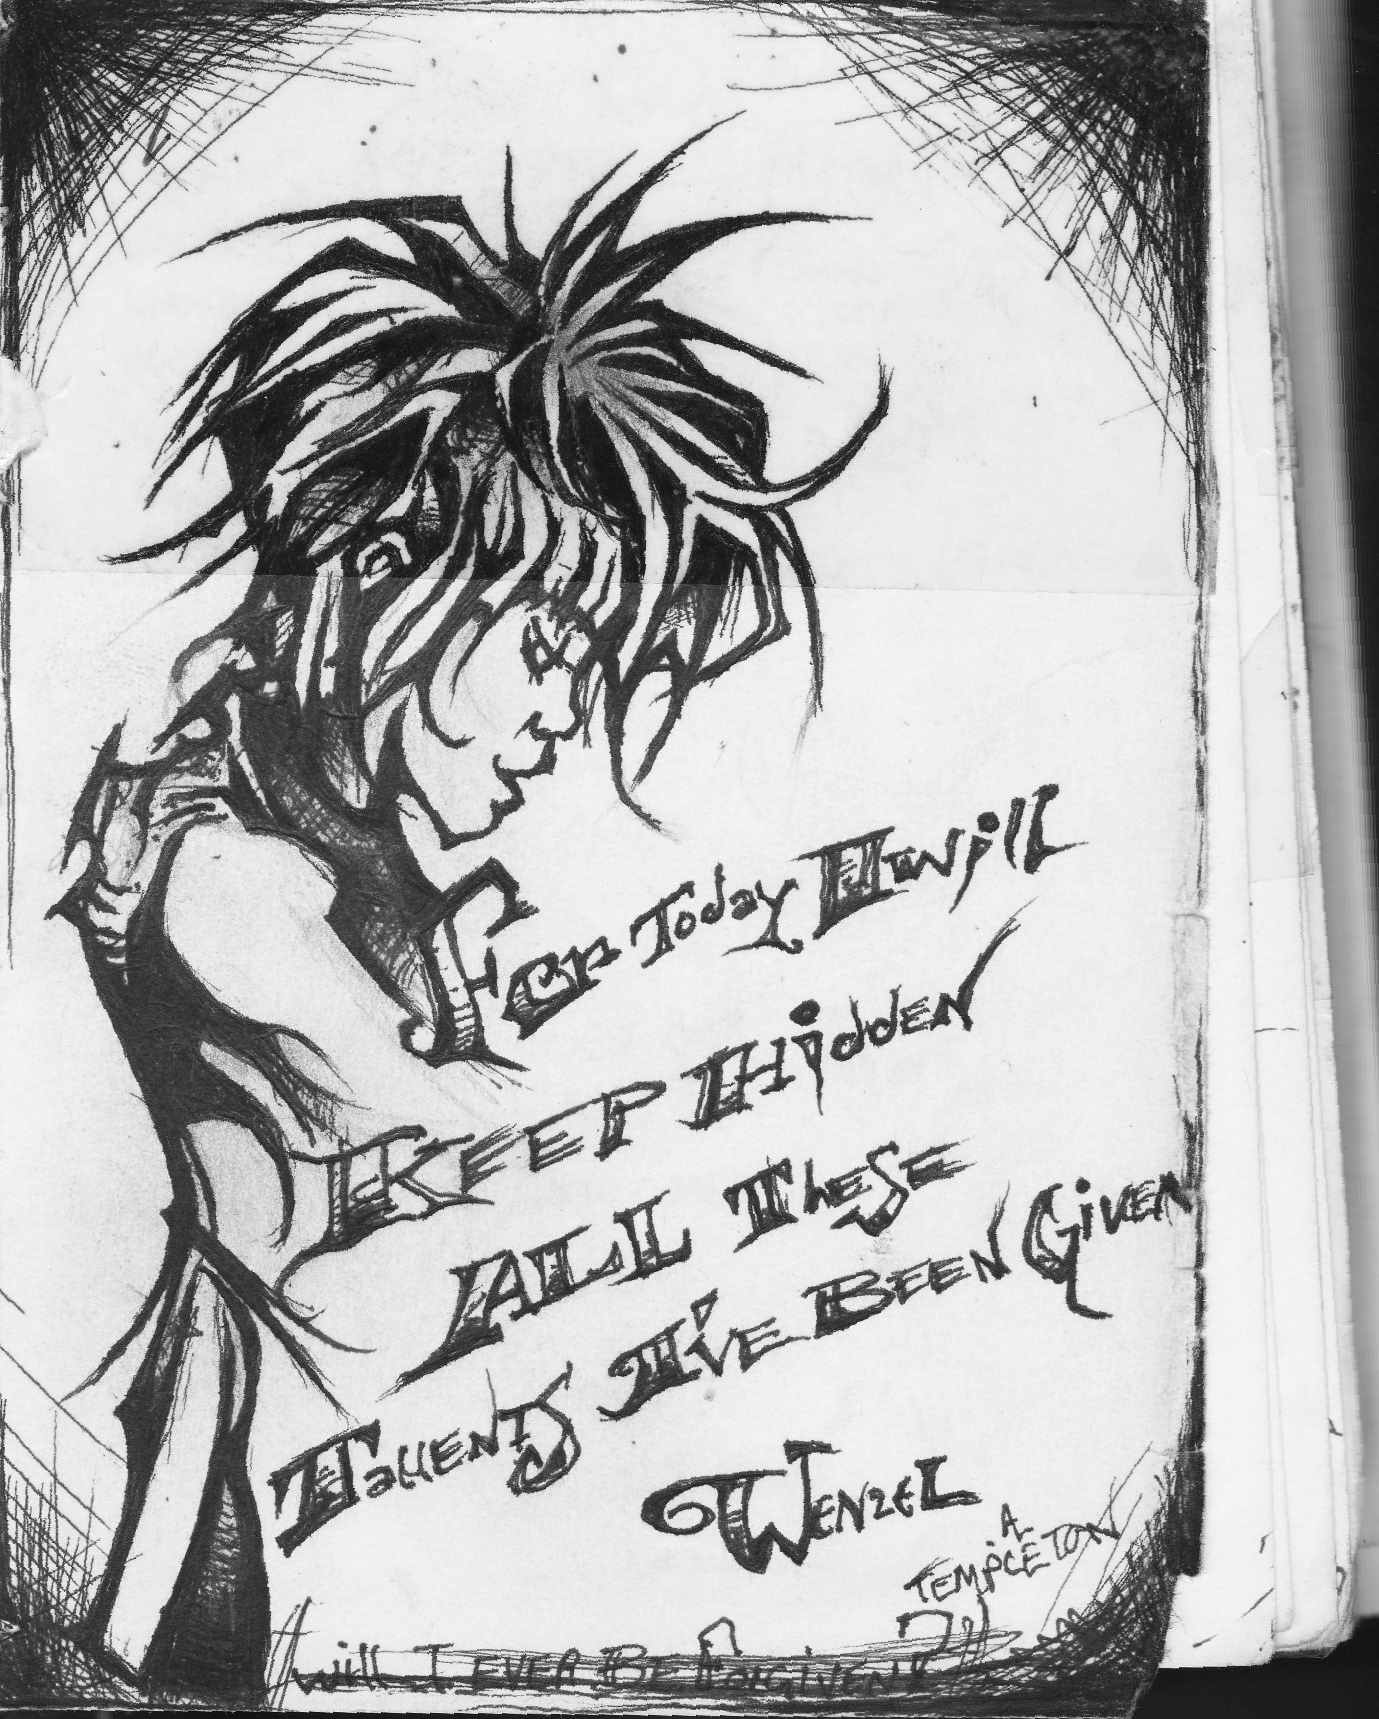 For Today I will
KEEP HiddEN
ALL ThESE
TallENTS I'vE BEEN GivEN
WENZEL
A
TEMPLETON
Will I EVER BE FORGIVEN?